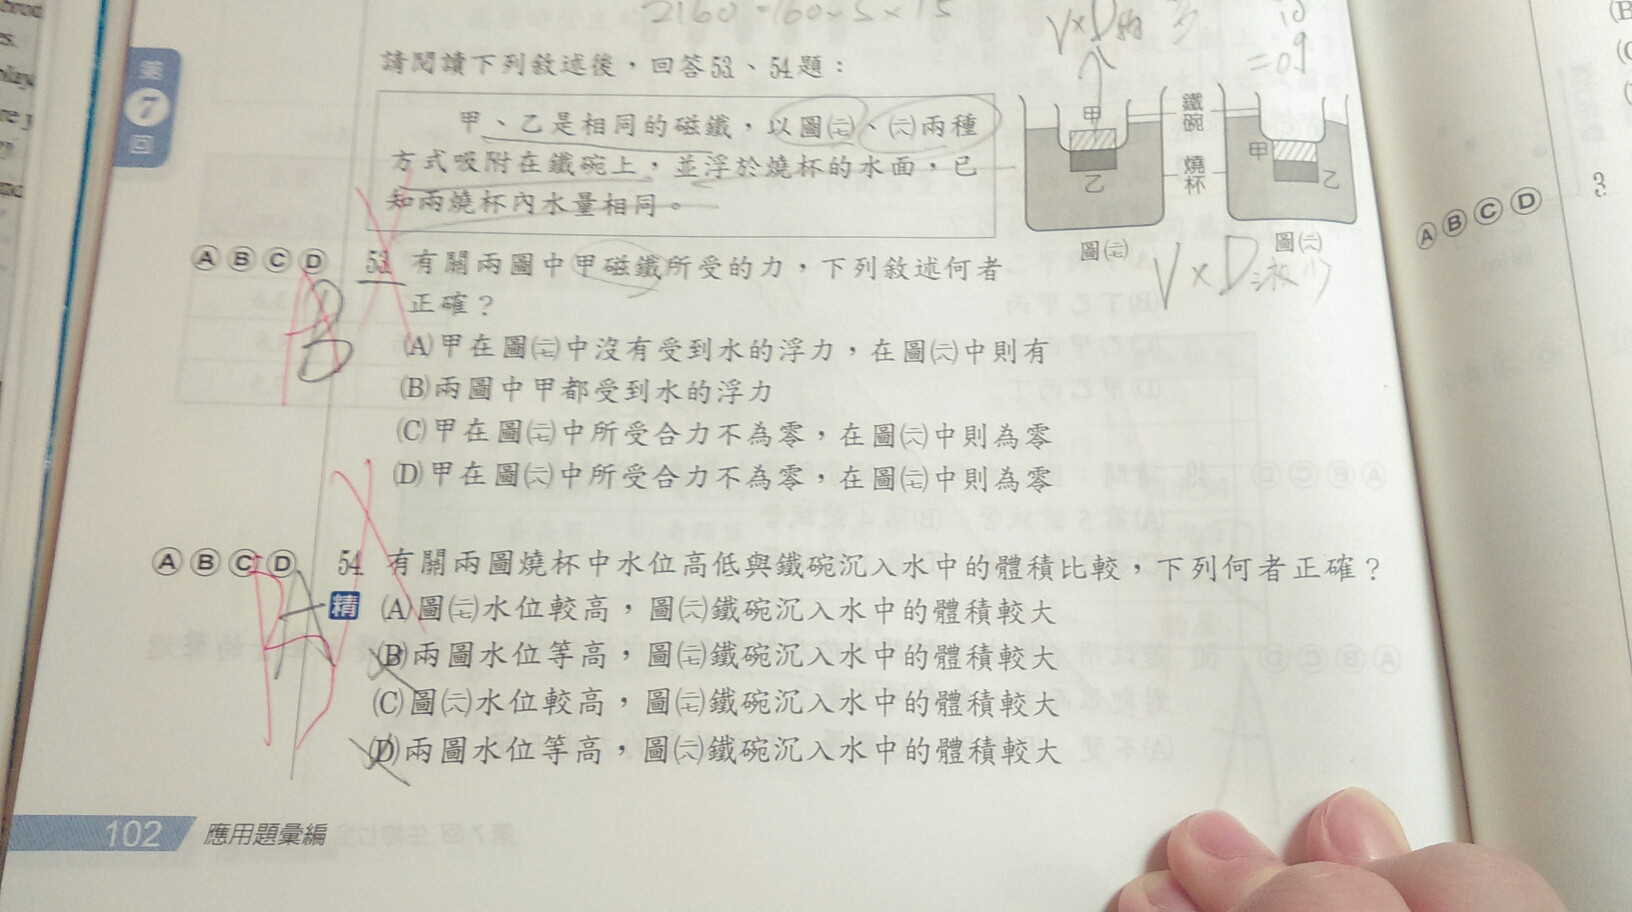 2160=160×5×15
V×D物 多
=0.9
第
7
回
請閱讀下列敘述後,回答53、54題:
甲、乙是相同的磁鐵,以圖(二七)、(二八)兩種
方式吸附在鐵碗上,並浮於燒杯的水面,已
知兩燒杯內水量相同。
甲
乙
鐵碗
燒杯
甲
乙
圖(二七)
圖(二八)
V×D液 少
ⒶⒷⒸⒹ 53 有關兩圖中甲磁鐵所受的力,下列敘述何者
正確?
(A)甲在圖(二七)中沒有受到水的浮力,在圖(二八)中則有
(B)兩圖中甲都受到水的浮力
(C)甲在圖(二七)中所受合力不為零,在圖(二八)中則為零
(D)甲在圖(二八)中所受合力不為零,在圖(二七)中則為零
A
ⒶⒷⒸⒹ 54 有關兩圖燒杯中水位高低與鐵碗沉入水中的體積比較,下列何者正確?
精 (A)圖(二七)水位較高,圖(二八)鐵碗沉入水中的體積較大
(B)兩圖水位等高,圖(二七)鐵碗沉入水中的體積較大
(C)圖(二八)水位較高,圖(二七)鐵碗沉入水中的體積較大
(D)兩圖水位等高,圖(二八)鐵碗沉入水中的體積較大
A
B
102 應用題彙編
ⒶⒷⒸⒹ
3